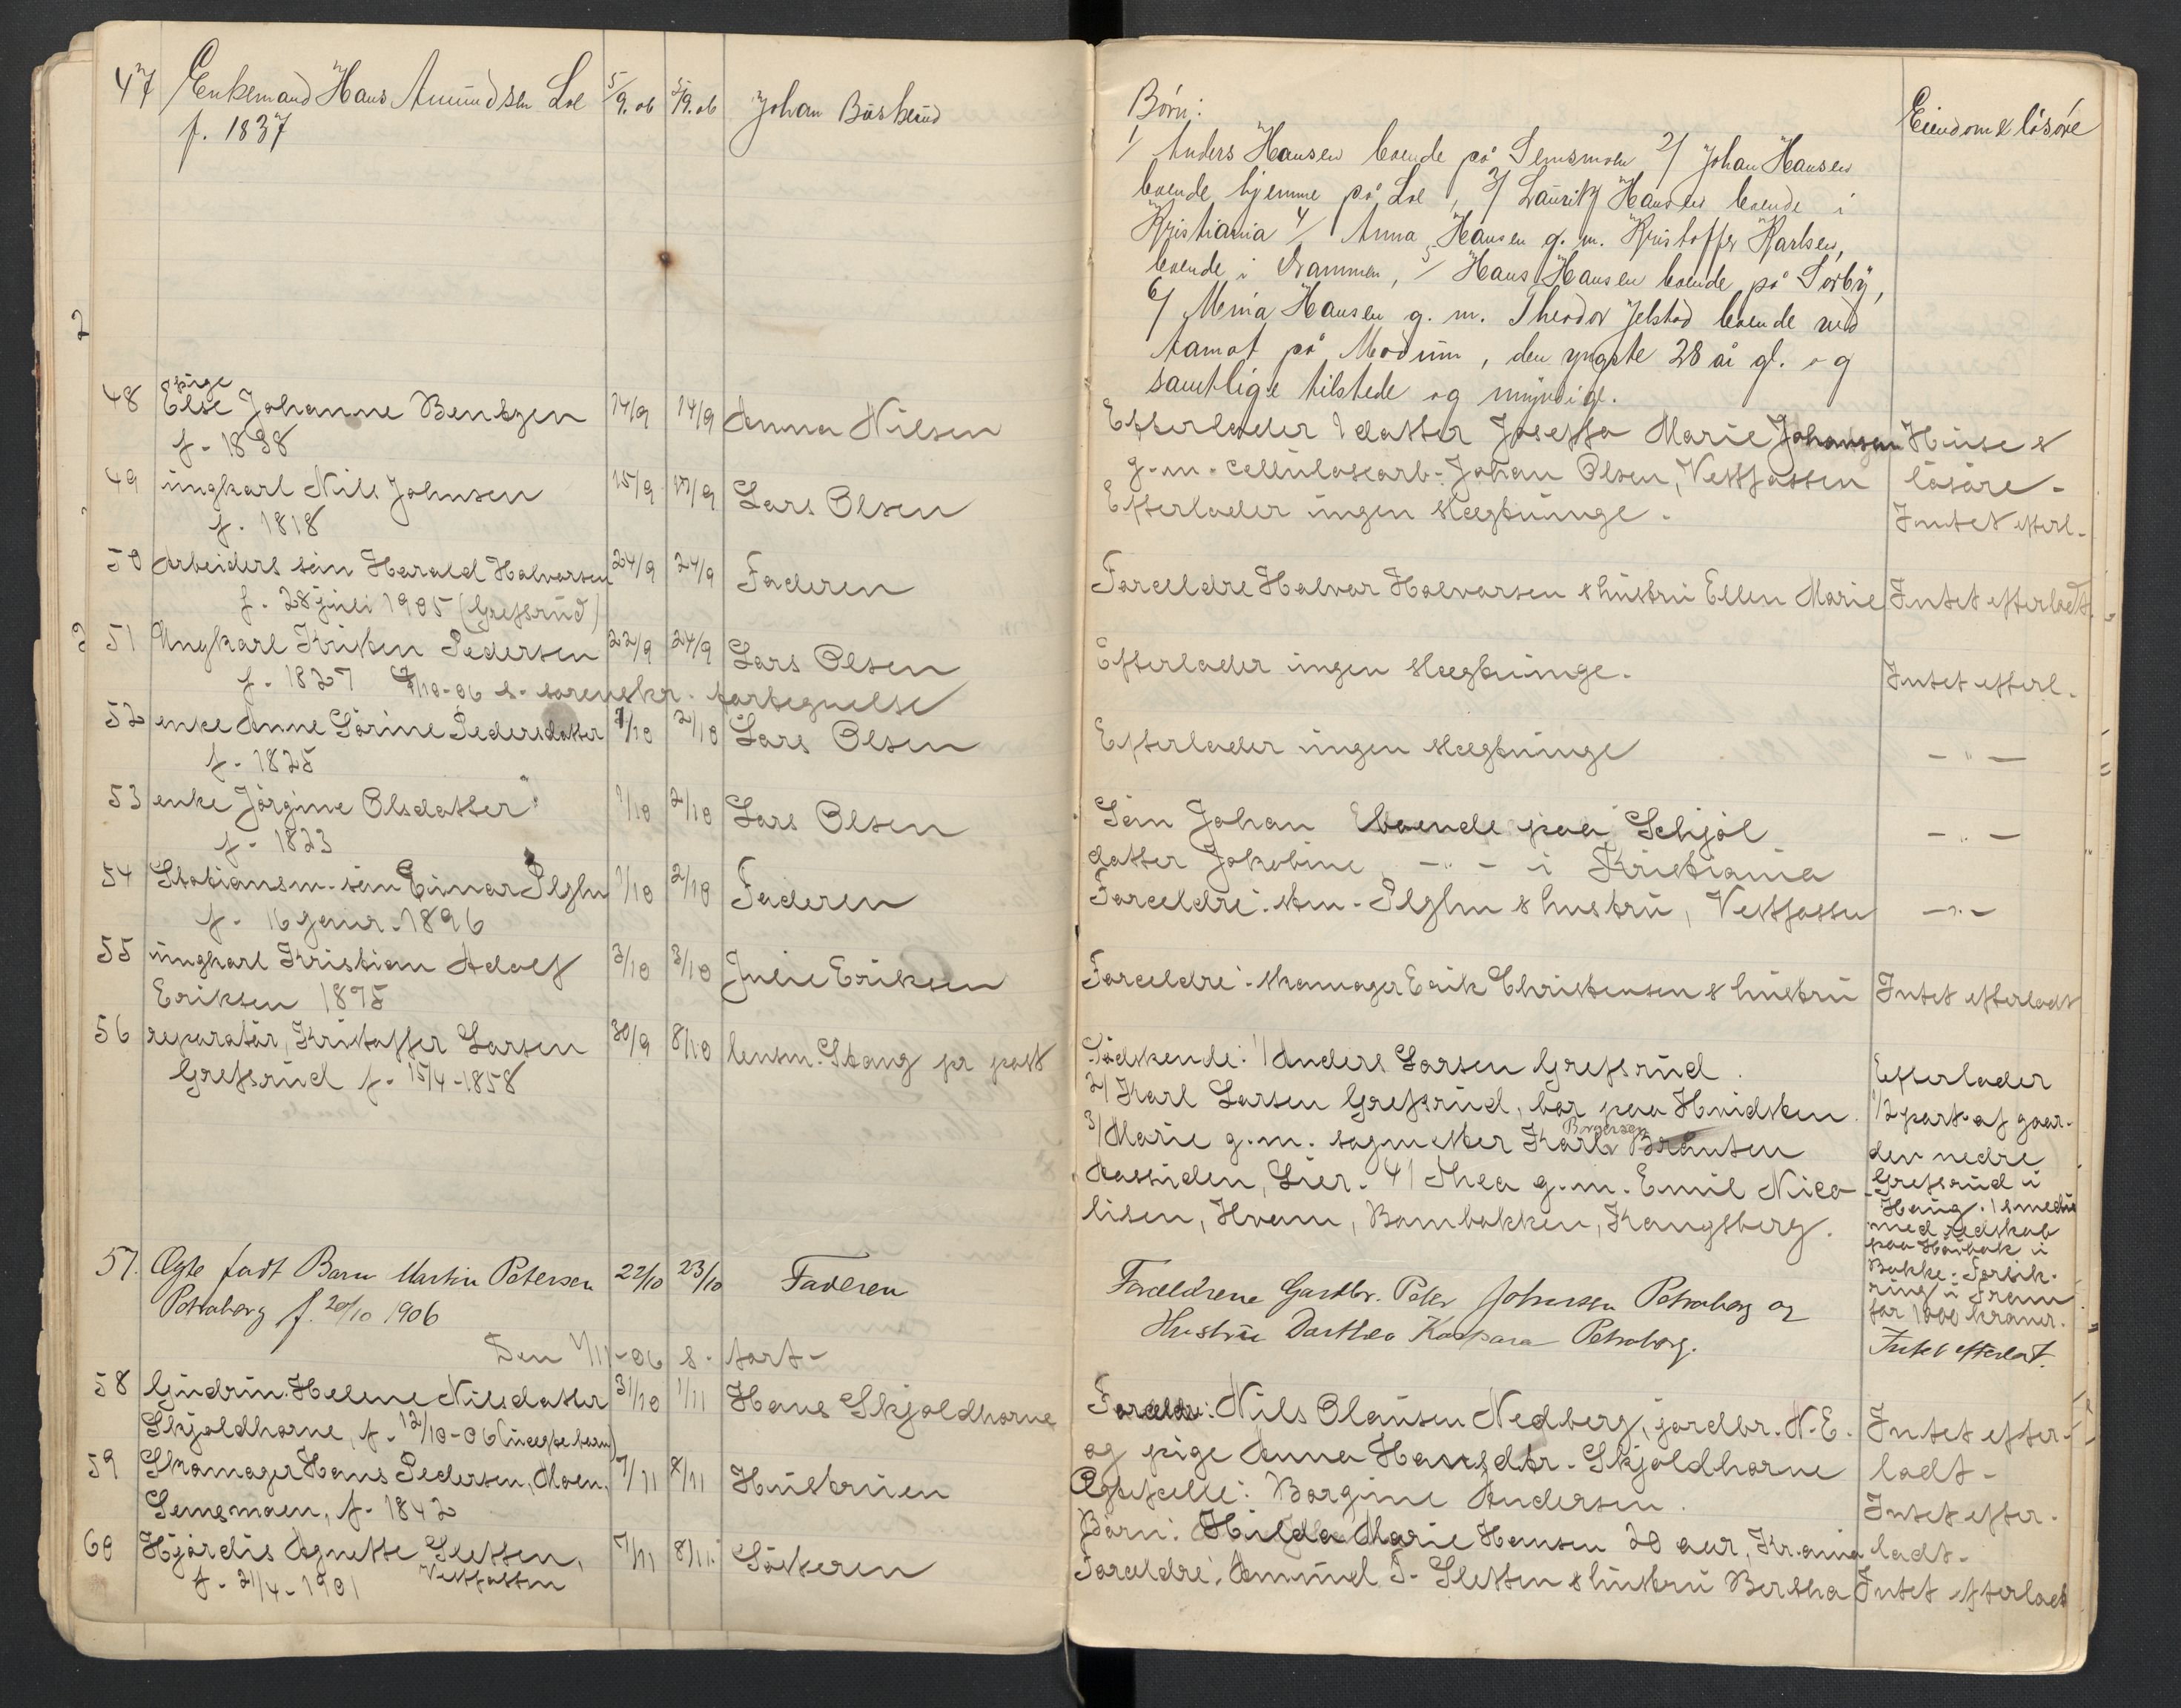 47 Enkemand Hans Amundsen Loe 5/9.06 5/9.06 Johan Buskerud
f. 1837
Børn:
1/ Anders Hansen boende på Semsmoen 2/ Johan Hansen
boende hjemme på Loe, 3/ Lauritz Hansen boende i
Kristiania 4/ Anna Hansen g. m. Kristoffer Karlsen,
boende i Drammen, 5/ Hans Hansen boende på Sørby,
6/ Mina Hansen g. m. Theodor Jelstad boende ved
Åamot på Modum, den yngste 28 år gl. og
samtlige tilstede og myndige.
Eiendom & løsøre
48 pige
Else Johanne Bentzen 14/9 14/9 Anna Nilsen
f. 1838
Efterlader 1 datter Joseffa Marie Johansen
g. m. cellulosearb. Johan Olsen, Vestfossen
Huse &
løsøre.
49 ungkarl Nils Johnsen 15/9 17/9 Lars Olsen
f. 1818
Efterlader ingen slægtninge.
Intet efterl.
50 Arbeiders søn Harald Halvorsen 24/9 24/9 Faderen
f. 28 juli 1905 (Grefsrud)
Forældre Halvor Halvorsen & hustru Ellen Marie
Intet efterladt.
51 Ungkarl Kristen Pedersen 22/9 24/9 Lars Olsen
f. 1827
Efterlader ingen slægtninge.
Intet efterl.
1/10-06 s. sorenskr. fortegnelse
52 enke Anne Sørine Pedersdatter 1/10 2/10 Lars Olsen
f. 1825
Efterlader ingen slægtninge
— " —
53 enke Jørgine Olsdatter 1/10 2/10 Lars Olsen
f. 1823
Søn Johan boende paa Schjøl
datter Jakobine — " — i Kristiania
— " —
54 Stationsm. søn Einar 1/10 2/10 Faderen
f. 16 janr. 1896
Forældre: stm. & hustru, Vestfossen
— " —
55 ungkarl Kristian Adolf 3/10 3/10 Julie Eriksen
Eriksen 1875
Forældre: skomager Erik Christensen & hustru
Intet efterladt
56 reparatør, Kristoffer Larsen 30/9 8/10 lensm. Stang pr post
Grefsrud f. 15/4-1858
Sødskende: 1/ Anders Larsen Grefsrud.
2/ Karl Larsen Grefsrud, bor paa Hvidsten.
Borgersen
3/ Marie g.m. sagmester Karl Braaten
Aassiden, Lier. 4/ Thea g.m. Emil Nico-
lisen, Hvam, Bambakken, Kongsberg.
Efterlader
1/2 part af gaar-
den nedre
Grefsrud i
Haug. 1 smedie
med redskab
paa Hørbak i
Bakke. Forsik-
ring i Fram
for 1000 kroner.
57. Ægte født Barn Martin Petersen 22/10 23/10 Faderen
Petraborg f. 20/10 1906
Forældrene Gardbr. Peter Johansen Petraborg og
Hustru Darthea Kaspara Petraborg.
Intet efterlat.
Den 1/11-06 s. fort-
58 Gudrun Helene Nilsdatter 31/10 1/11 Hans Skjoldhorne
Skjoldhorne, f. 12/10-06 (uægte barn)
Forældre: Nils Olausen Nedberg, jordbr. N. E.
og pige Anna Hansdtr. Skjoldhorne
Intet efter-
ladt.
59 Skomager Hans Pedersen, Moen, 7/11 8/11 Hustruen
Semsmoen, f. 1842
Ægtefælle: Borgine Andersen.
Børn: Hilda Marie Hansen 20 aar, Kr.ania
Intet efter-
ladt.
60 Hjørdis Agnette Sletten, 7/11 8/11. Søsteren
f. 21/4-1901 Vestfossen
Forældre: Amund T. Sletten & hustru Bertha
Intet efterladt